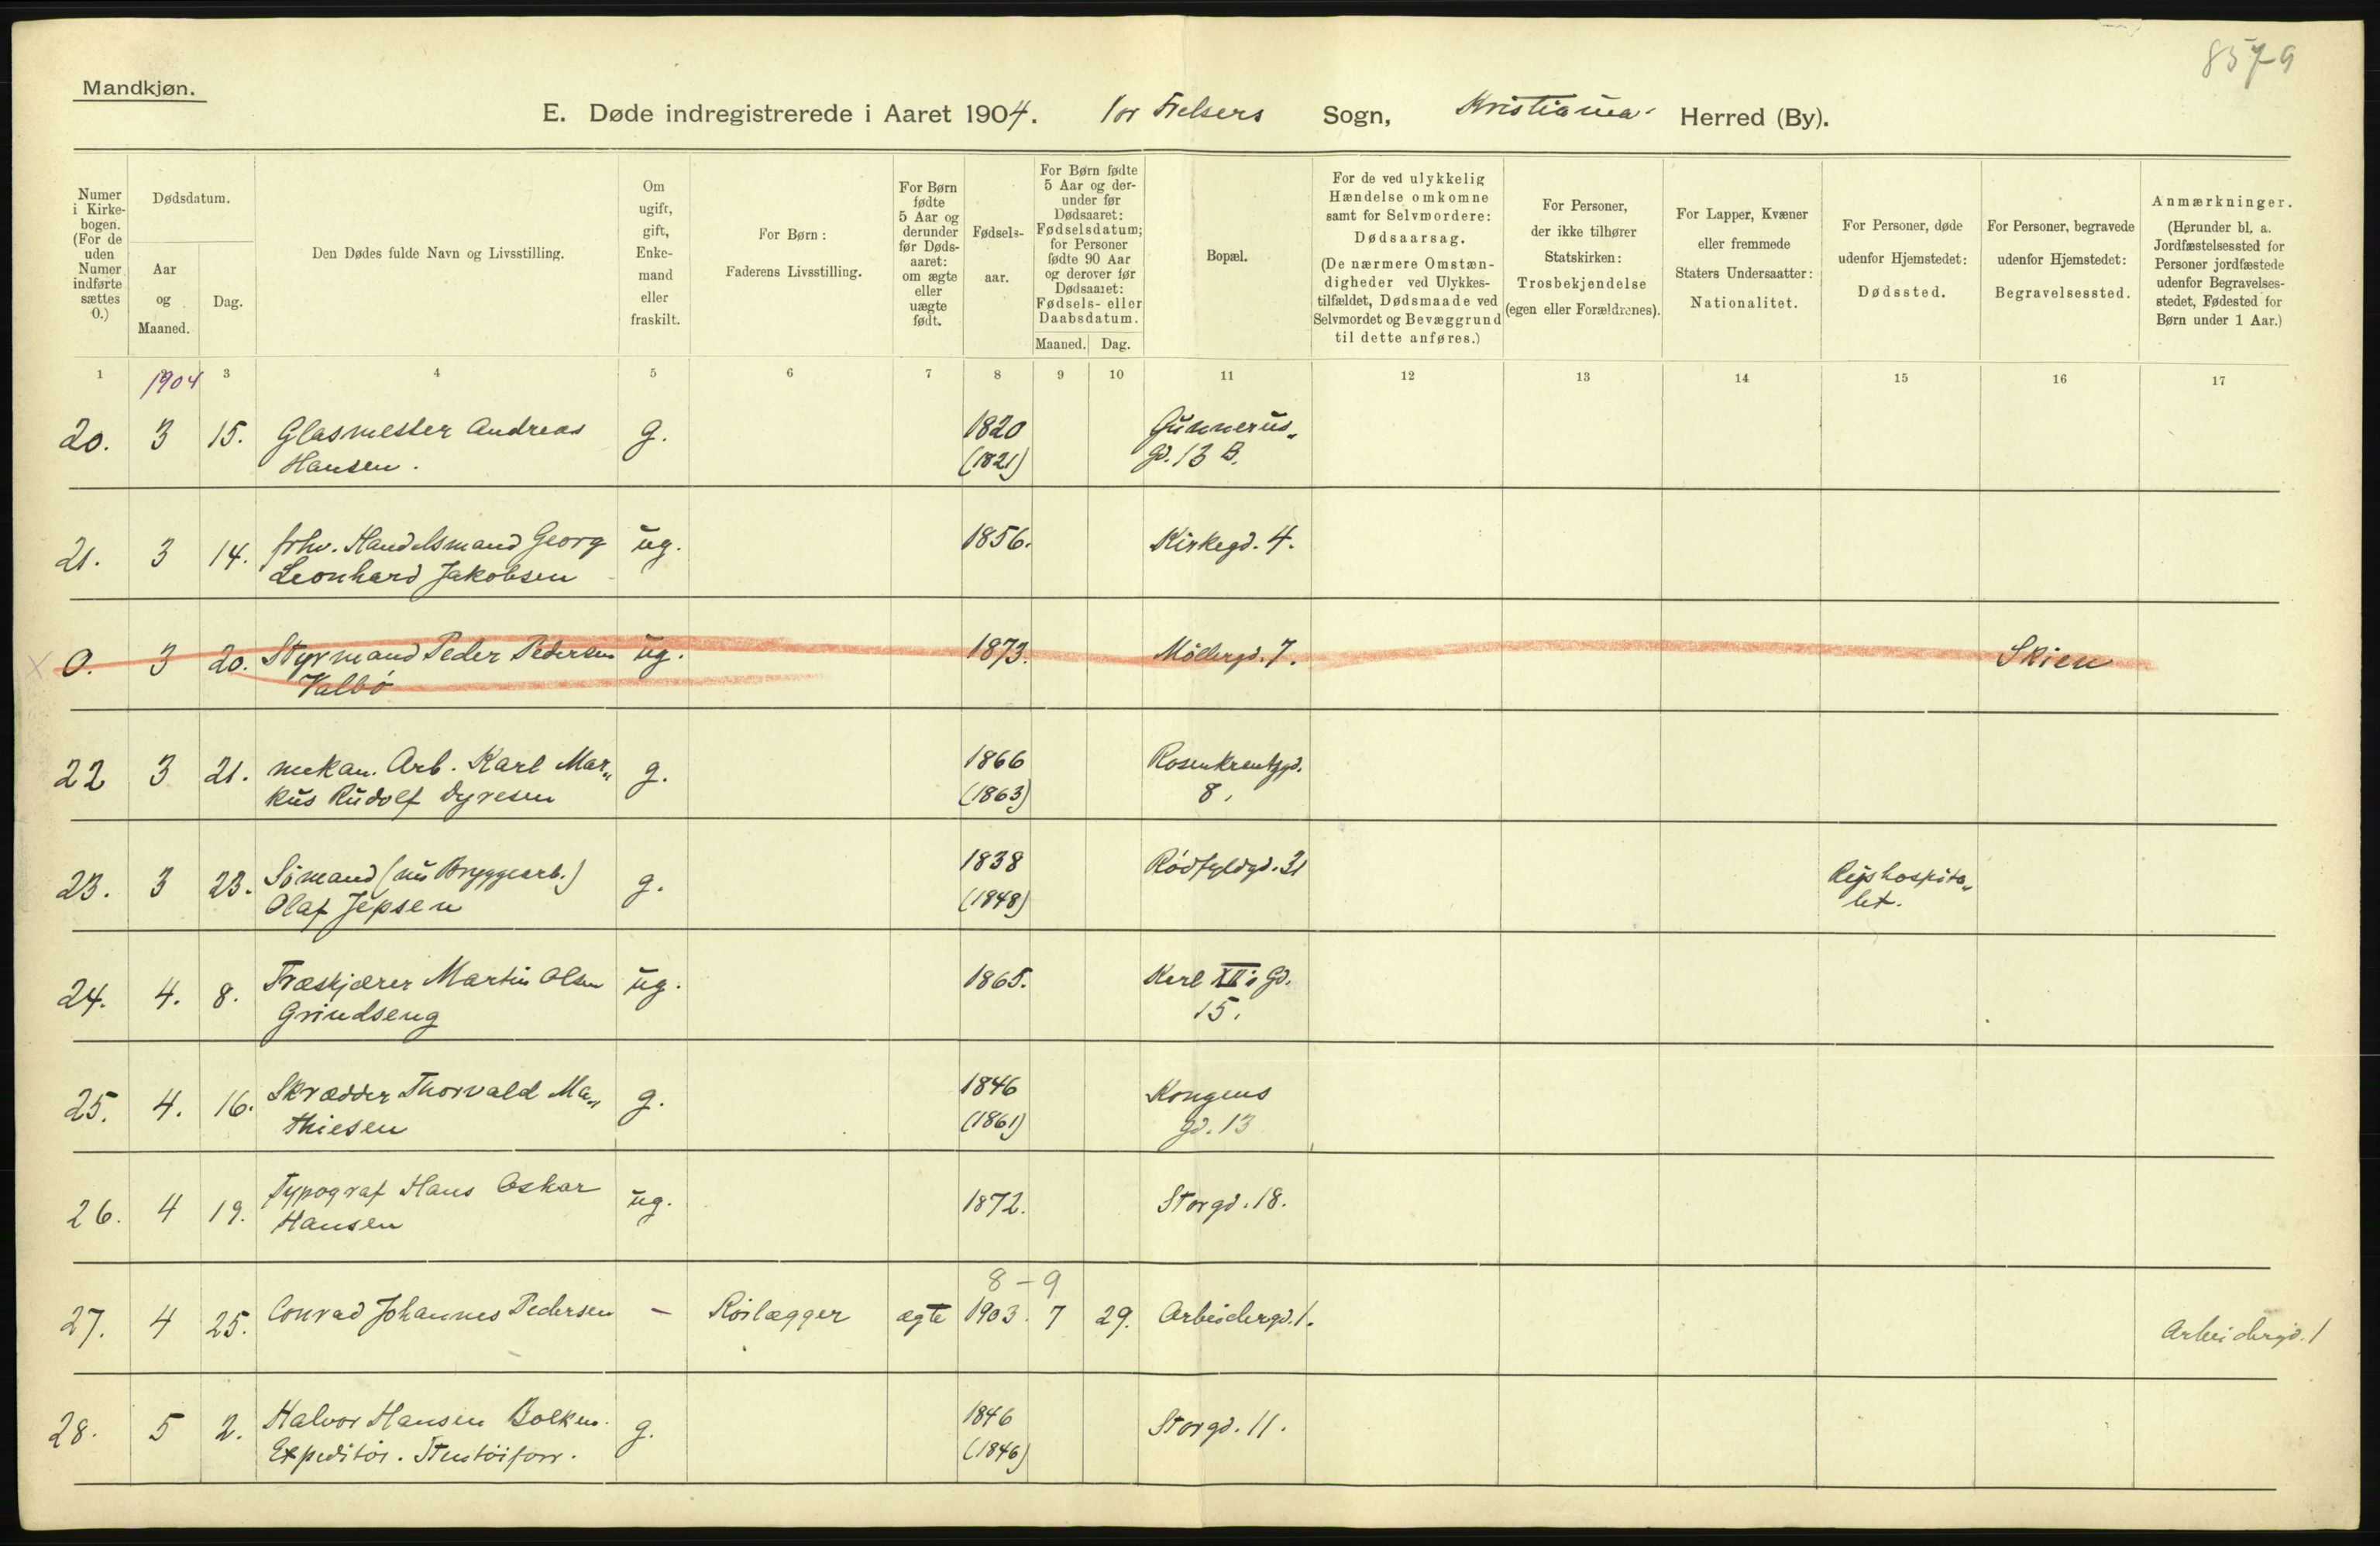 8579
Mandkjøn.
E. Døde indregistrerede i Aaret 1904. Vor Frelsers Sogn, Kristiania Herred (By).
Numer i Kirkebogen. (For de uden Numer indførte sættes 0.)
Dødsdatum.
Aar og Maaned.
Dag.
Den Dødes fulde Navn og Livsstilling.
Om ugift, gift, Enkemand eller fraskilt.
For Børn: Faderens Livsstilling.
For Børn fødte 5 Aar og derunder før Dødsaaret: om ægte eller uægte født.
Fødselsaar.
For Børn fødte 5 Aar og derunder før Dødsaaret: Fødselsdatum; for Personer fødte 90 Aar og derover før Dødsaaret: Fødsels- eller Daabsdatum.
Maaned. Dag.
Bopæl.
For de ved ulykkelig Hændelse omkomne samt for Selvmordere: Dødsaarsag. (De nærmere Omstændigheder ved Ulykkestilfældet, Dødsmaade ved Selvmordet og Bevæggrund til dette anføres.)
For Personer, der ikke tilhører Statskirken: Trosbekjendelse (egen eller Forældrenes).
For Lapper, Kvæner eller fremmede Staters Undersaatter: Nationalitet.
For Personer, døde udenfor Hjemstedet: Dødssted.
For Personer, begravede udenfor Hjemstedet: Begravelsessted.
Anmærkninger. (Herunder bl. a. Jordfæstelsessted for Personer jordfæstede udenfor Begravelsesstedet, Fødested for Børn under 1 Aar.)
1 1904 3 4 5 6 7 8 9 10 11 12 13 14 15 16 17
20. 3 15. Glasmester Andreas g. 1820 Gunnerus„
Hansen. (1821) gd. 13 B.
21. 3 14. frhv. Handelsmand Georg ug. 1856. Kirkegd. 4.
Leonhard Jakobsen
0. 3 20. Styrmand Peder Pedersen ug. 1873. Møllergd. 7. Skien
Valbø
22 3 21. mekan. Arb. Karl Mar„ g. 1866 Rosenkrentzgd.
kus Rudolf Dyresen (1863) 8.
23. 3 23. Sømand (nu Bryggearb.) g. 1838 Rødfyldgd. 31 Rigshospita„
Olaf Jepsen (1848) let.
24. 4. 8. Træskjærer Martin Olsen ug. 1865. Karl XII's Gd.
Grindseng 15.
25. 4. 16. Skrædder Thorvald Ma„ g. 1846 Kongens
thiesen (1861) gd. 13
26. 4 19. Typograf Hans Oskar ug. 1872. Storgd. 18.
Hansen
8-9
27. 4 25. Conrad Johannes Pedersen — Rørlægger ægte 1903. 7 29. Arbeidergd. 1. Arbeidergd. 1
28. 5 2. Halvor Hansen Bolken. g. 1846 Storgd. 11.
Expeditør. Stentøiforr. (1846)